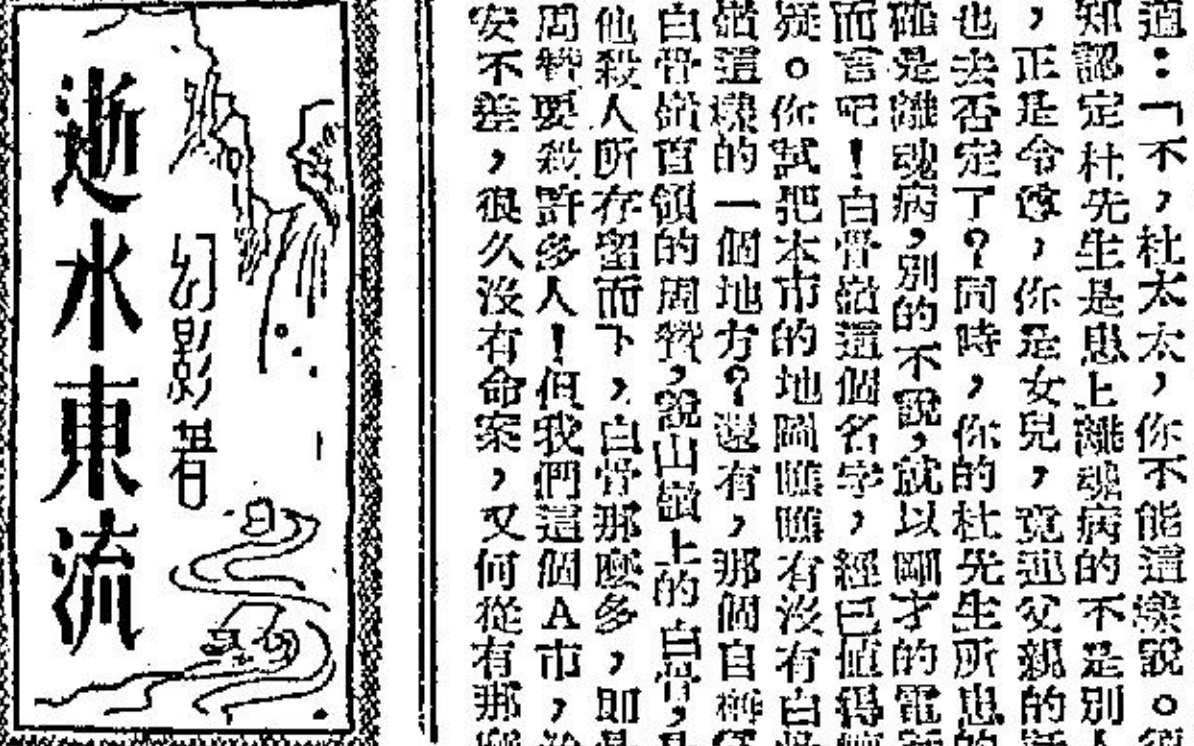 適：「不，杜太太，你不能這樣說。須
知認定杜先生是患上離魂病的不是別人
，正是令尊，你是女兒，竟連父親的話
也去否定了？同時，你的杜先生所患的
確是離魂病，別的不說，就以剛才的電話
而言吧！白骨嶺這個名字，經已值得懷
疑。你試把本市的地圖瞧瞧有沒有白骨
嶺這樣的一個地方？還有，那個自稱
白骨嶺首領的周贊，說山嶺上的白骨，是
他殺人所存留而下，白骨那麼多，即是
周贊要殺許多人！但我們這個A市，治
安不差，很久沒有命案，又何從有那麼
逝水東流
幻影著